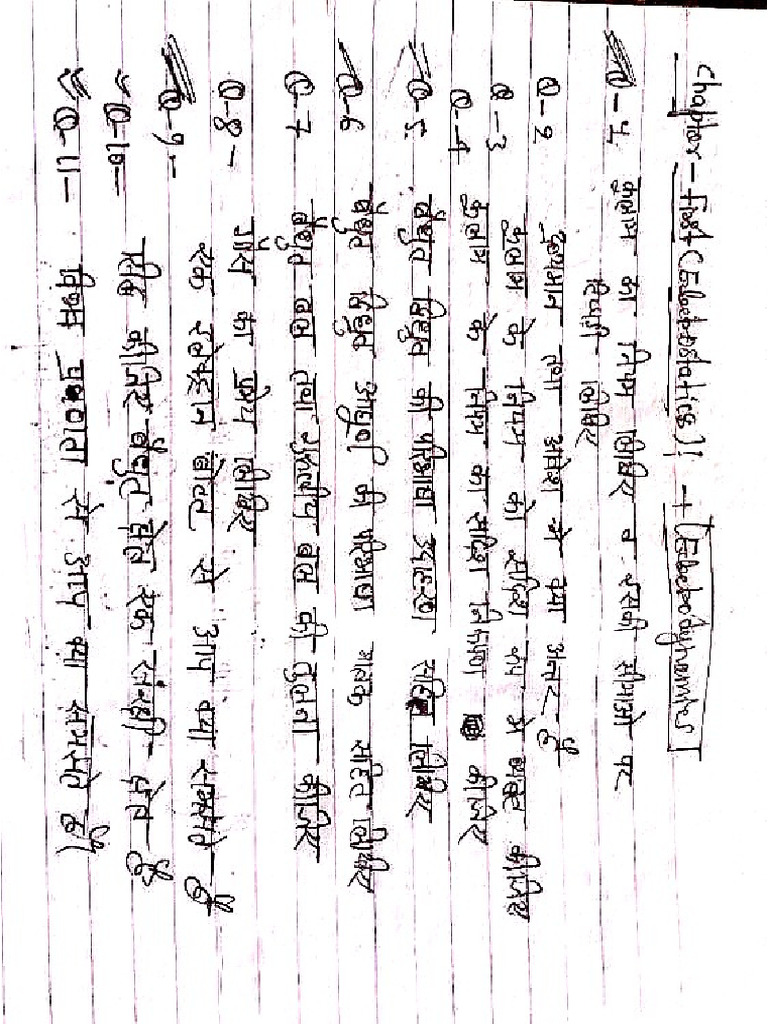 Chapter - First (Electrostatics) :- → Electrodynamics
Q-1 कुलाम का नियम लिखिए व इसकी सीमाओ पर
टिप्पणी लिखिए
Q-2 द्रव्यमान तथा आवेश मे क्या अन्तर है
Q-3 कुलाम के नियम को सदिश रूप मे व्यक्त कीजिए
Q-4 कुलाम के नियम का सदिश निरूपण कीजिए
Q-5 वैधुत द्विध्रुव की परिभाषा उदाहरण सहित लिखिए
Q-6 वैधुत द्विध्रुव आघूर्ण की परिभाषा मात्रक सहित लिखिए
Q-7 वैधुत बल तथा गुरुत्वीय बल की तुलना कीजिए
Q-8 - गॉस का प्रमेय लिखिए
Q-9 - एक समान वैधुत से आप क्या समझते है
Q-10 - सिद्ध कीजिए वैधुत क्षेत्र एक संरक्षी क्षेत्र है
Q-11 - विभव प्रवणता से आप क्या समझते है।